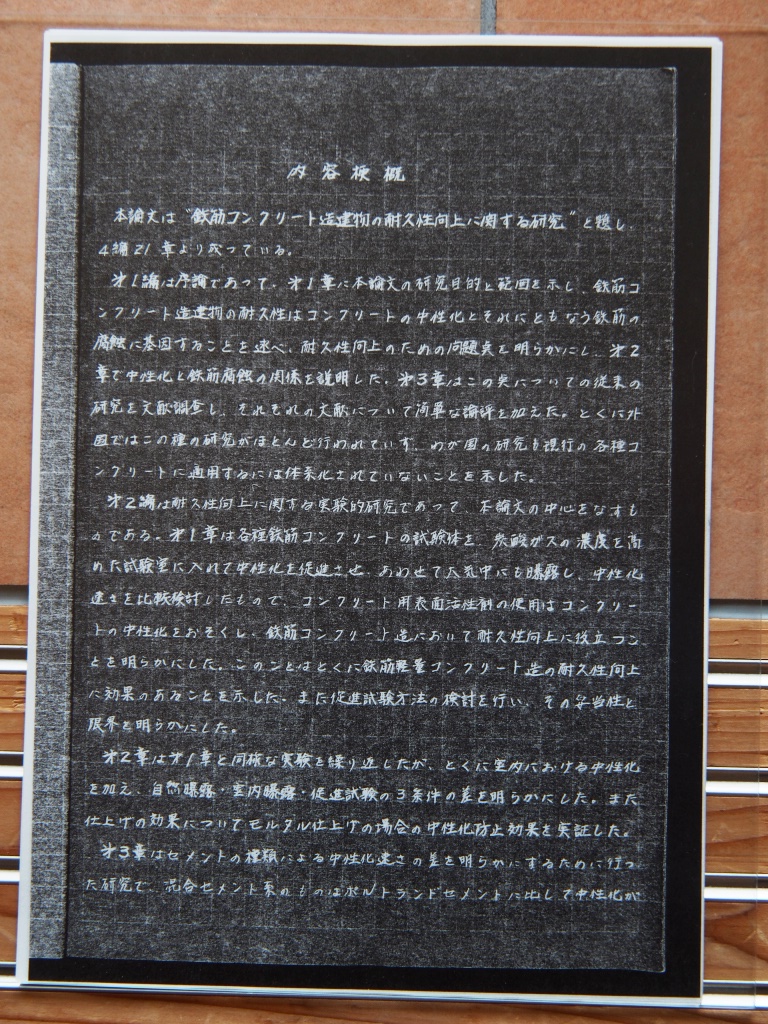 内容梗概
本論文は"鉄筋コンクリート造建物の耐久性向上に関する研究"と題し、
4編21章より成つている。
第1編は序論であつて、第1章に本論文の研究目的と範囲を示し、鉄筋コ
ンクリート造建物の耐久性はコンクリートの中性化とそれにともなう鉄筋の
腐蝕に基因することを述べ、耐久性向上のための問題点を明らかにし、第2
章で中性化と鉄筋腐蝕の関係を説明した。第3章はこの点についての従来の
研究を文献調査し、それぞれの文献について簡単な論評を加えた。とくに外
国ではこの種の研究がほとんど行われていず、わが国の研究も現行の各種コ
ンクリートに適用するには体系化されていないことを示した。
第2編は耐久性向上に関する実験的研究であつて、本論文の中心をなすも
のである。第1章は各種鉄筋コンクリートの試験体を、炭酸ガスの濃度を高
めた試験室に入れて中性化を促進させ、あわせて大気中にも曝露し、中性化
速さを比較検討したもので、コンクリート用表面活性剤の使用はコンクリー
トの中性化をおそくし、鉄筋コンクリート造において耐久性向上に役立つこ
とを明らかにした。このことはとくに鉄筋軽量コンクリート造の耐久性向上
に効果のあることを示した。また促進試験方法の検討を行い、その妥当性と
限界を明らかにした。
第2章は第1章と同様な実験を繰り返したが、とくに室内における中性化
を加え、自然曝露・室内曝露・促進試験の3条件の差を明らかにした。また
仕上げの効果についてモルタル仕上げの場合の中性化防止効果を実証した。
第3章はセメントの種類による中性化速さの差を明らかにするために行つ
た研究で、混合セメント系のものはポルトランドセメントに比して中性化が